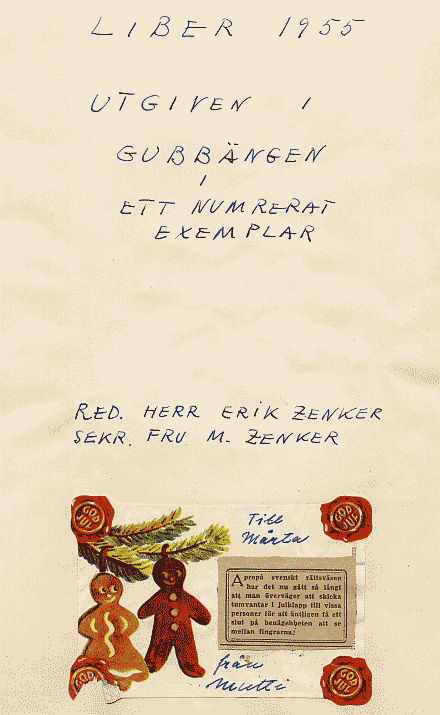 LIBER 1955
UTGIVEN I
GUBBÄNGEN
I
ETT NUMRERAT
EXEMPLAR
RED. HERR ERIK ZENKER
SEKR. FRU M. ZENKER
GOD JUL
GOD JUL
Till
Märta
Apropå svenskt rättsväsen
har det nu gått så långt
att man överväger att skicka
tumvantar i julklapp till vissa
personer för att äntligen få ett
slut på benägenheten att se
mellan fingrarna.
från
Mutti
GOD JUL
GOD JUL